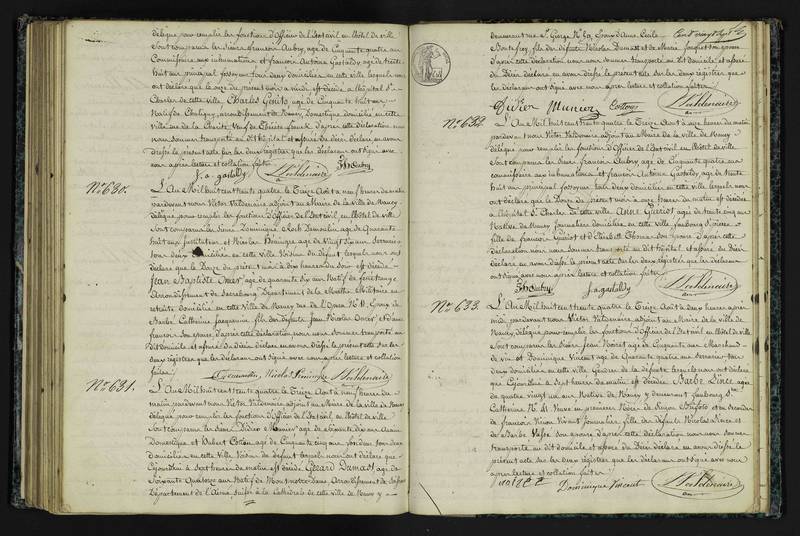 délégué pour remplir les fonctions d'Officier de l'Etat civil en l'hôtel de ville
sont comparus les Sieurs françois Aubry, agé de Cinquante quatre ans
Commissaire aux inhumations et françois Antoine Gastaldy, agé de trente
huit ans principal fossoyeur tous deux domiciliés en cette ville lesquels nous
ont déclaré que le onze du présent mois à midi est décédé à l'hôpital St
Charles de cette ville, Charles Génito, agé de Cinquante huit ans
Natif de Chaligny, arrondissement de Nancy, Domestique domicilié en cette
ville d'après cette déclaration nous
nous sommes transporté au dit hôpital et assuré du décès déclaré en avons
dressé le présent acte sur les deux registres que les déclarans ont signé avec
nous après lecture et collation faites
J. a. gastaldy fs Aubry
No. 630.
L'An Mil huit cent trente quatre le Treize Août à neuf heures du matin
pardevant nous Victor Valdenaire adjoint au Maire de la ville de Nancy
délégué pour remplir les fonctions d'Officier de l'Etat civil en l'hôtel de ville
sont comparus les Sieurs Dominique Roch agé de Quarante
huit ans Instituteur et Nicolas agé de Vingt Six ans Serrurier
tous deux domiciliés en cette ville Voisins du défunt lesquels nous ont
déclaré que le Douze du présent mois à dix heures du soir est décédé
Jean Baptiste Omer agé de quarante six ans Natif de fénétrange
Arrondissement de Sarrebourg Département de la Meurthe Militaire en
retraite Domicilié en cette Ville de Nancy rue de l'Opera Epoux de
Barbe Catherine Jacquemin fils des défunts Jean Nicolas Omer et d'Anne
françois son épouse, d'après cette déclaration nous nous sommes transporté au
dit Domicile et assuré du décès déclaré en avons dressé le présent acte sur les
deux registres que les déclarans ont signé avec nous après lecture et collation
faites
No. 631.
L'An Mil huit cent trente quatre le Treize Août à neuf heures du
matin pardevant nous Victor Valdenaire adjoint au Maire de la ville de Nancy
délégué pour remplir les fonctions d'Officier de l'Etat civil en l'hôtel de ville
sont comparus les Sieurs Didier Munier agé de soixante dix ans Ancien
Domestique et Hubert Cottom agé de Cinquante cinq ans tous deux
domiciliés en cette Ville Voisins du défunt lesquels nous ont déclaré que
Cejourd'hui à Sept heures du matin est décédé Gérard Damast agé de
Soixante Quatorze ans Natif de Arrondissement de
Département de l'Aisne, Suisse à la Cathédrale de cette ville de Nancy y
demeurant rue St George No 59, Epoux d'Anne Cécile
fils des défunts Nicolas Damast et de Marie son épouse
d'après cette déclaration nous nous sommes transporté au dit domicile et assuré
du décès déclaré en avons dressé le présent acte sur les deux registres que
les déclarans ont signé avec nous après lecture et collation faites
Didier Munier Cottom
No. 632.
L'An Mil huit cent trente quatre le Treize Août à onze heures du matin
pardevant nous Victor Valdenaire adjoint au Maire de la Ville de Nancy
délégué pour remplir les fonctions d'Officier de l'Etat civil en l'hôtel de ville
sont comparus les Sieurs françois Aubry agé de Cinquante quatre ans
commissaire aux inhumations et françois Antoine Gastaldy, agé de trente
huit ans principal fossoyeur tous deux domiciliés en cette ville lesquels nous
ont déclaré que le Douze du présent mois à onze heures du matin est décédée
à l'hôpital St Charles de cette ville Anne Guériot agée de trente cinq ans
Native de Nancy Journalière domiciliée en cette ville, faubourg St pierre
fille de françois Guériot et d'Elisabeth Thomas son épouse d'après cette
déclaration nous nous sommes transporté au dit hôpital et assuré du décès
déclaré en avons dressé le présent acte sur les deux registres que les déclarans
ont signé avec nous après lecture et collation faites
fs Aubry J. a. gastaldy
No. 633.
L'An Mil huit cent trente quatre le Treize Août à deux heures après
midi pardevant nous Victor Valdenaire adjoint au Maire de la ville de
Nancy, délégué pour remplir les fonctions d'Officier de l'Etat civil en l'hôtel de ville
sont comparus les Sieurs Jean agé de Cinquante ans Marchand
de vin et Dominique Vincent agé de Quarante quatre ans Serrurier tous
deux domiciliés en cette ville Gendres de la défunte lesquels nous ont déclaré
que Cejourd'hui à Sept heures du matin est décédée Barbe agée
de quatre vingt un ans Native de Nancy y demeurant faubourg Ste
Catherine Veuve en premières Noces de et en secondes
de françois Vivant Journalier, fille des défunts Nicolas et
de Barbe son épouse, d'après cette déclaration nous nous sommes
transporté au dit domicile et assuré du Décès déclaré en avons dressé le
présent acte sur les deux registres que les déclarans ont signé avec nous
après lecture et collation faites
Dominique Vincent